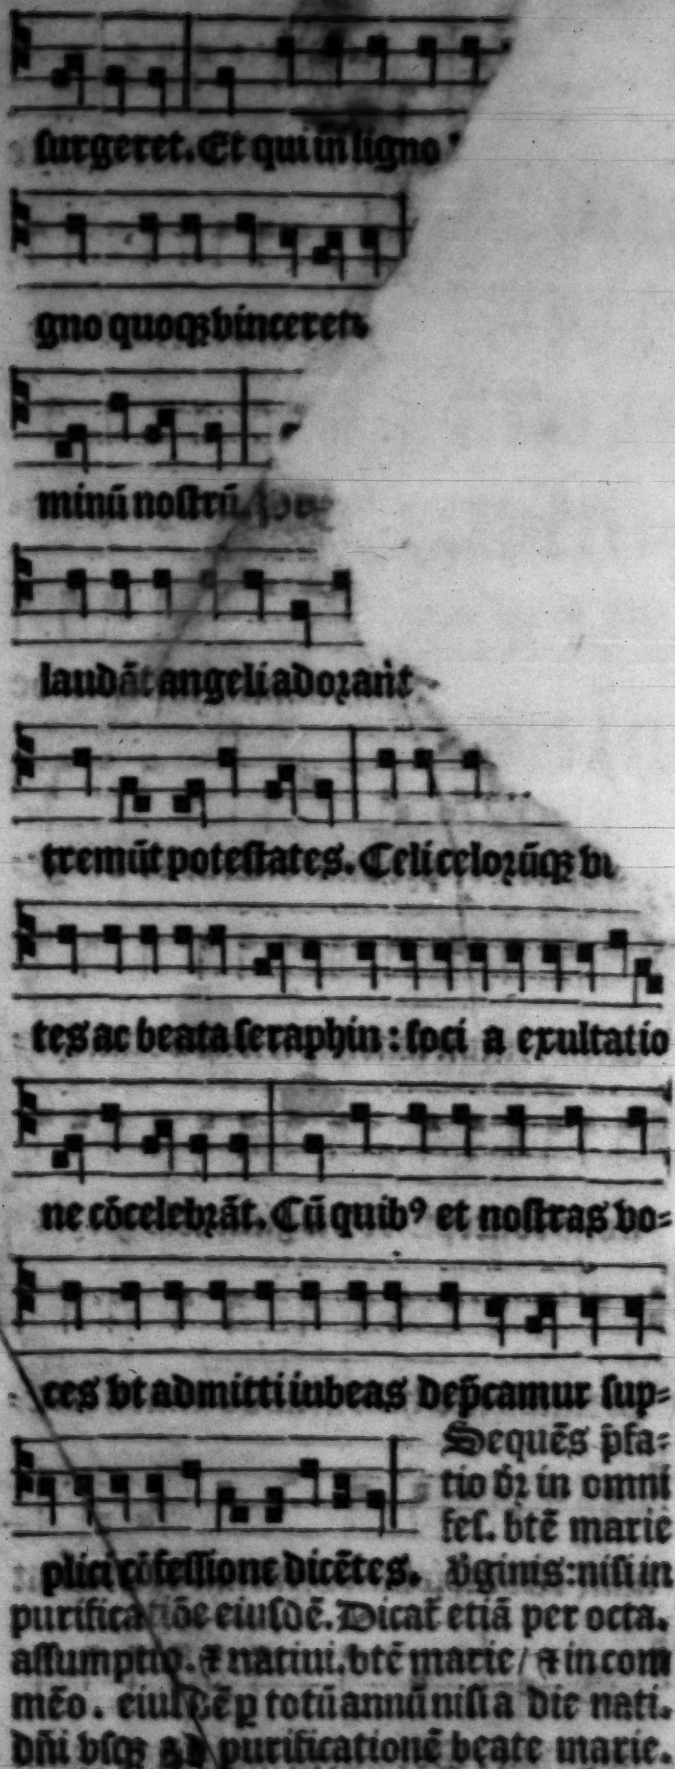 surgeret. Et qui in ligno
gno quoqꝫ vinceret
minū nostrū.
laudāt angeli adorāt
tremūt potestates. Celi celorūqꝫ vi
tes ac beata seraphin: soci a exultatio
ne cōcelebrāt. Cū quibꝰ et nostras vo=
ces vt admitti iubeas dep̄camur sup=
plici cōfessione dicētes.
Sequēs p̄fa=
tio dr̄ in omni
fes. btē marie
v̄ginis: nisi in
purificatiōe eiusdē. Dicat̄ etiā per octa.
assumptio. ⁊ natiui. btē marie / ⁊ in com
mēo. eiusdē ꝑ totū annū nisi a die nati.
dn̄i vsqꝫ ad purificationē beate marie.